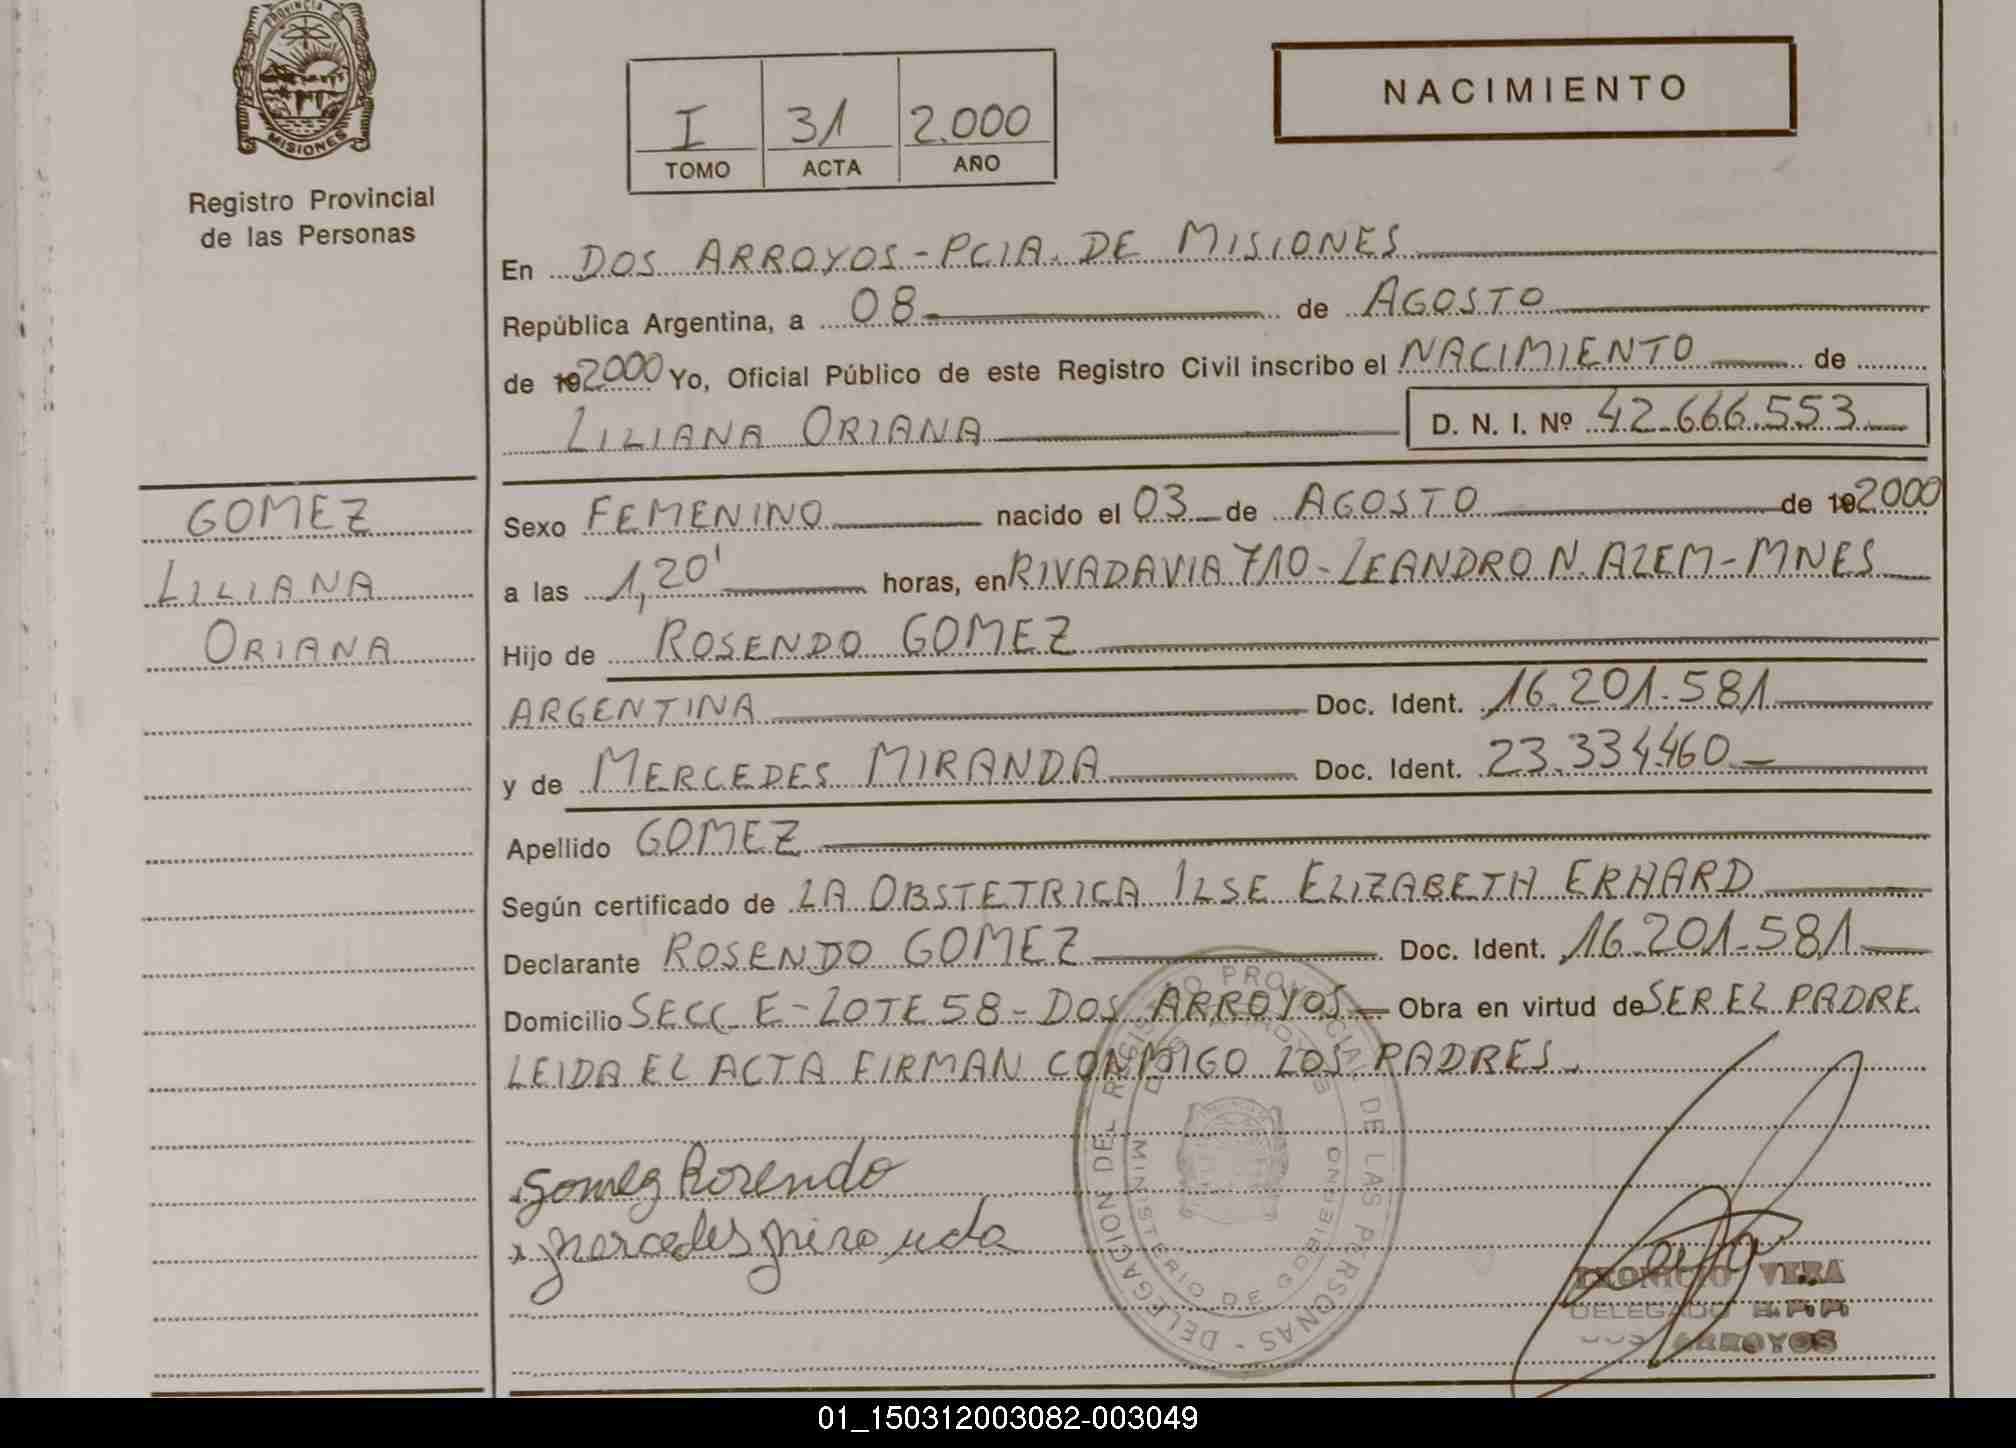 PROVINCIA DE
MISIONES
Registro Provincial
de las Personas
GOMEZ
LILIANA
ORIANA
I 31 2.000
TOMO ACTA AÑO
NACIMIENTO
En DOS ARROYOS - PCIA. DE MISIONES
República Argentina, a 08 de AGOSTO
de 19 2000 Yo, Oficial Público de este Registro Civil inscribo el NACIMIENTO de
LILIANA ORIANA D. N. I. Nº 42.666.553
Sexo FEMENINO nacido el 03 de AGOSTO de 19 2000
a las 1,20' horas, en RIVADAVIA 710 - LEANDRO N. ALEM - MNES
Hijo de ROSENDO GOMEZ
ARGENTINA Doc. Ident. 16.201.581
y de MERCEDES MIRANDA Doc. Ident. 23.334.460
Apellido GOMEZ
Según certificado de LA OBSTETRICA ILSE ELIZABETH ERHARD
Declarante ROSENDO GOMEZ Doc. Ident. 16.201.581
Domicilio SECC. E - LOTE 58 - DOS ARROYOS Obra en virtud de SER EL PADRE
LEIDA EL ACTA FIRMAN CONMIGO LOS PADRES.
Gomez Rosendo
mercedes mira nda
DELEGACION DEL REGISTRO PROVINCIAL DE LAS PERSONAS -
MINISTERIO DE GOBIERNO
VERA
DELEGADO R.P.P.
DOS ARROYOS
01_150312003082-003049